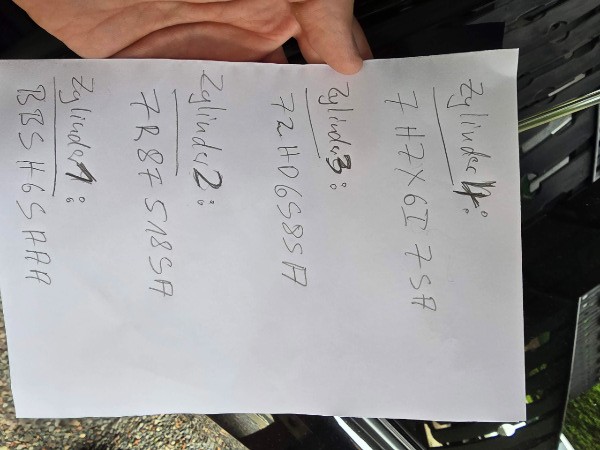 Zylinder 4:
7H7X6I7SA
Zylinder 3:
72H06S8SA
Zylinder 2:
7R87S18SA
Zylinder 1:
BBSH6SAAA